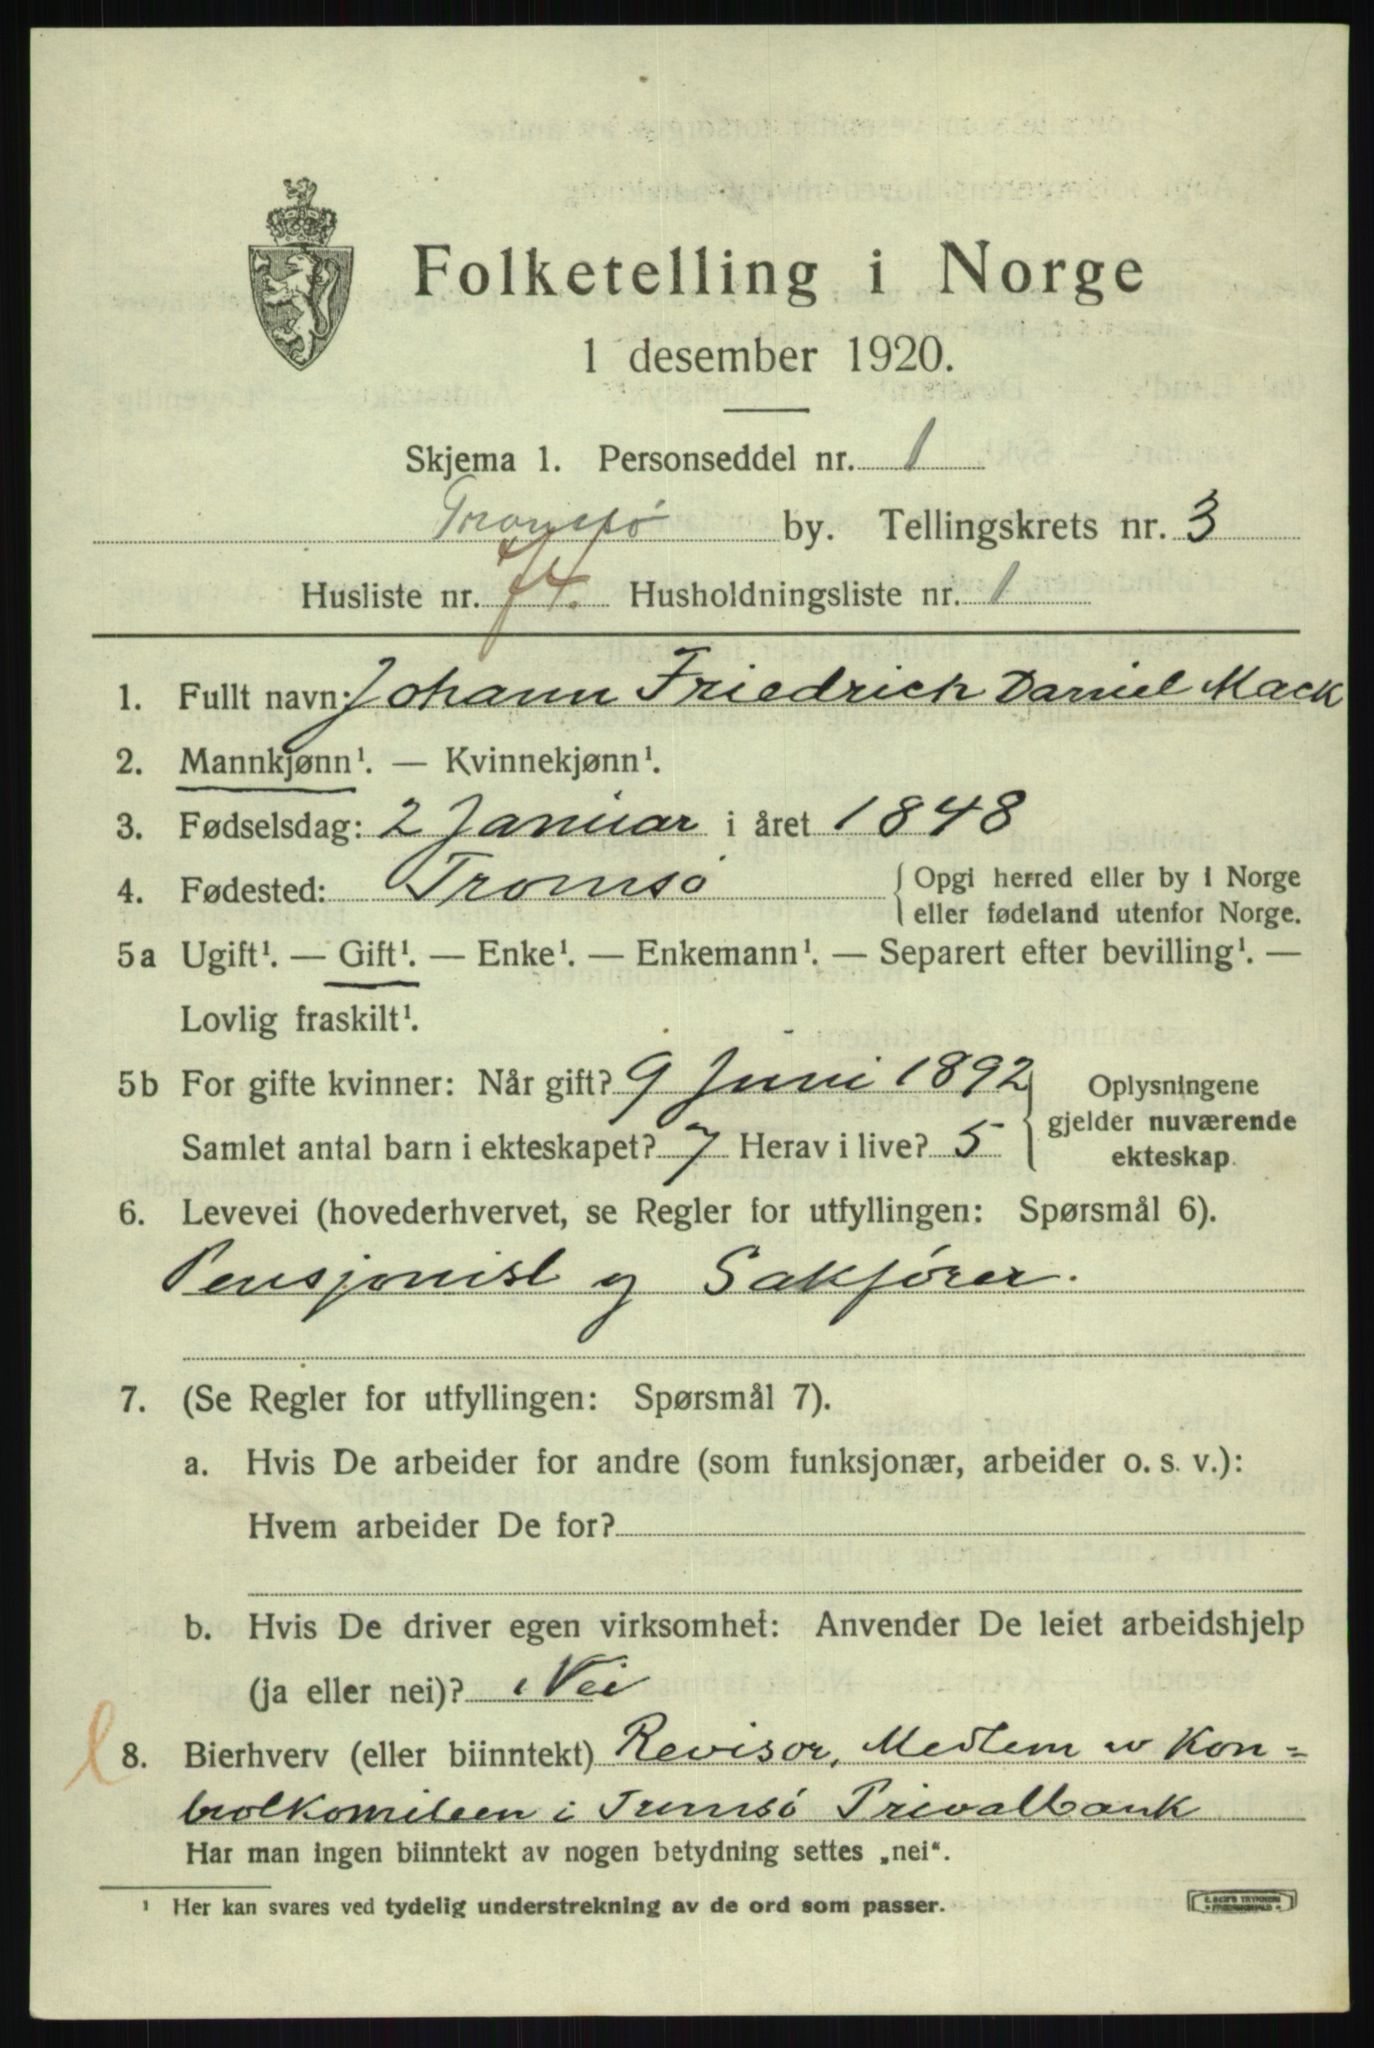 Folketelling i Norge
1 desember 1920.
Skjema 1. Personseddel nr. 1
Tromsø by. Tellingskrets nr. 3
Husliste nr. 74. Husholdningsliste nr. 1
1. Fullt navn: Johann Friedrich Daniel Mack
2. Mannkjønn¹. — Kvinnekjønn¹.
3. Fødselsdag: 2 Januar i året 1848
4. Fødested: Tromsø { Opgi herred eller by i Norge
eller fødeland utenfor Norge.
5a Ugift¹. — Gift¹. — Enke¹. — Enkemann¹. — Separert efter bevilling¹. —
Lovlig fraskilt¹.
5b For gifte kvinner: Når gift? 9 Juni 1892
Samlet antal barn i ekteskapet? 7 Herav i live? 5
} Oplysningene
gjelder nuværende
ekteskap.
6. Levevei (hovederhvervet, se Regler for utfyllingen: Spørsmål 6).
Pensjonist og Sakfører.
7. (Se Regler for utfyllingen: Spørsmål 7).
a. Hvis De arbeider for andre (som funksjonær, arbeider o. s. v.):
Hvem arbeider De for?
b. Hvis De driver egen virksomhet: Anvender De leiet arbeidshjelp
(ja eller nei)? Nei
8. Bierhverv (eller biinntekt) Revisor, Medlem av Kon=
trolkomiteen i Tromsø Privatbank
Har man ingen biinntekt av nogen betydning settes „nei“.
¹ Her kan svares ved tydelig understrekning av de ord som passer.